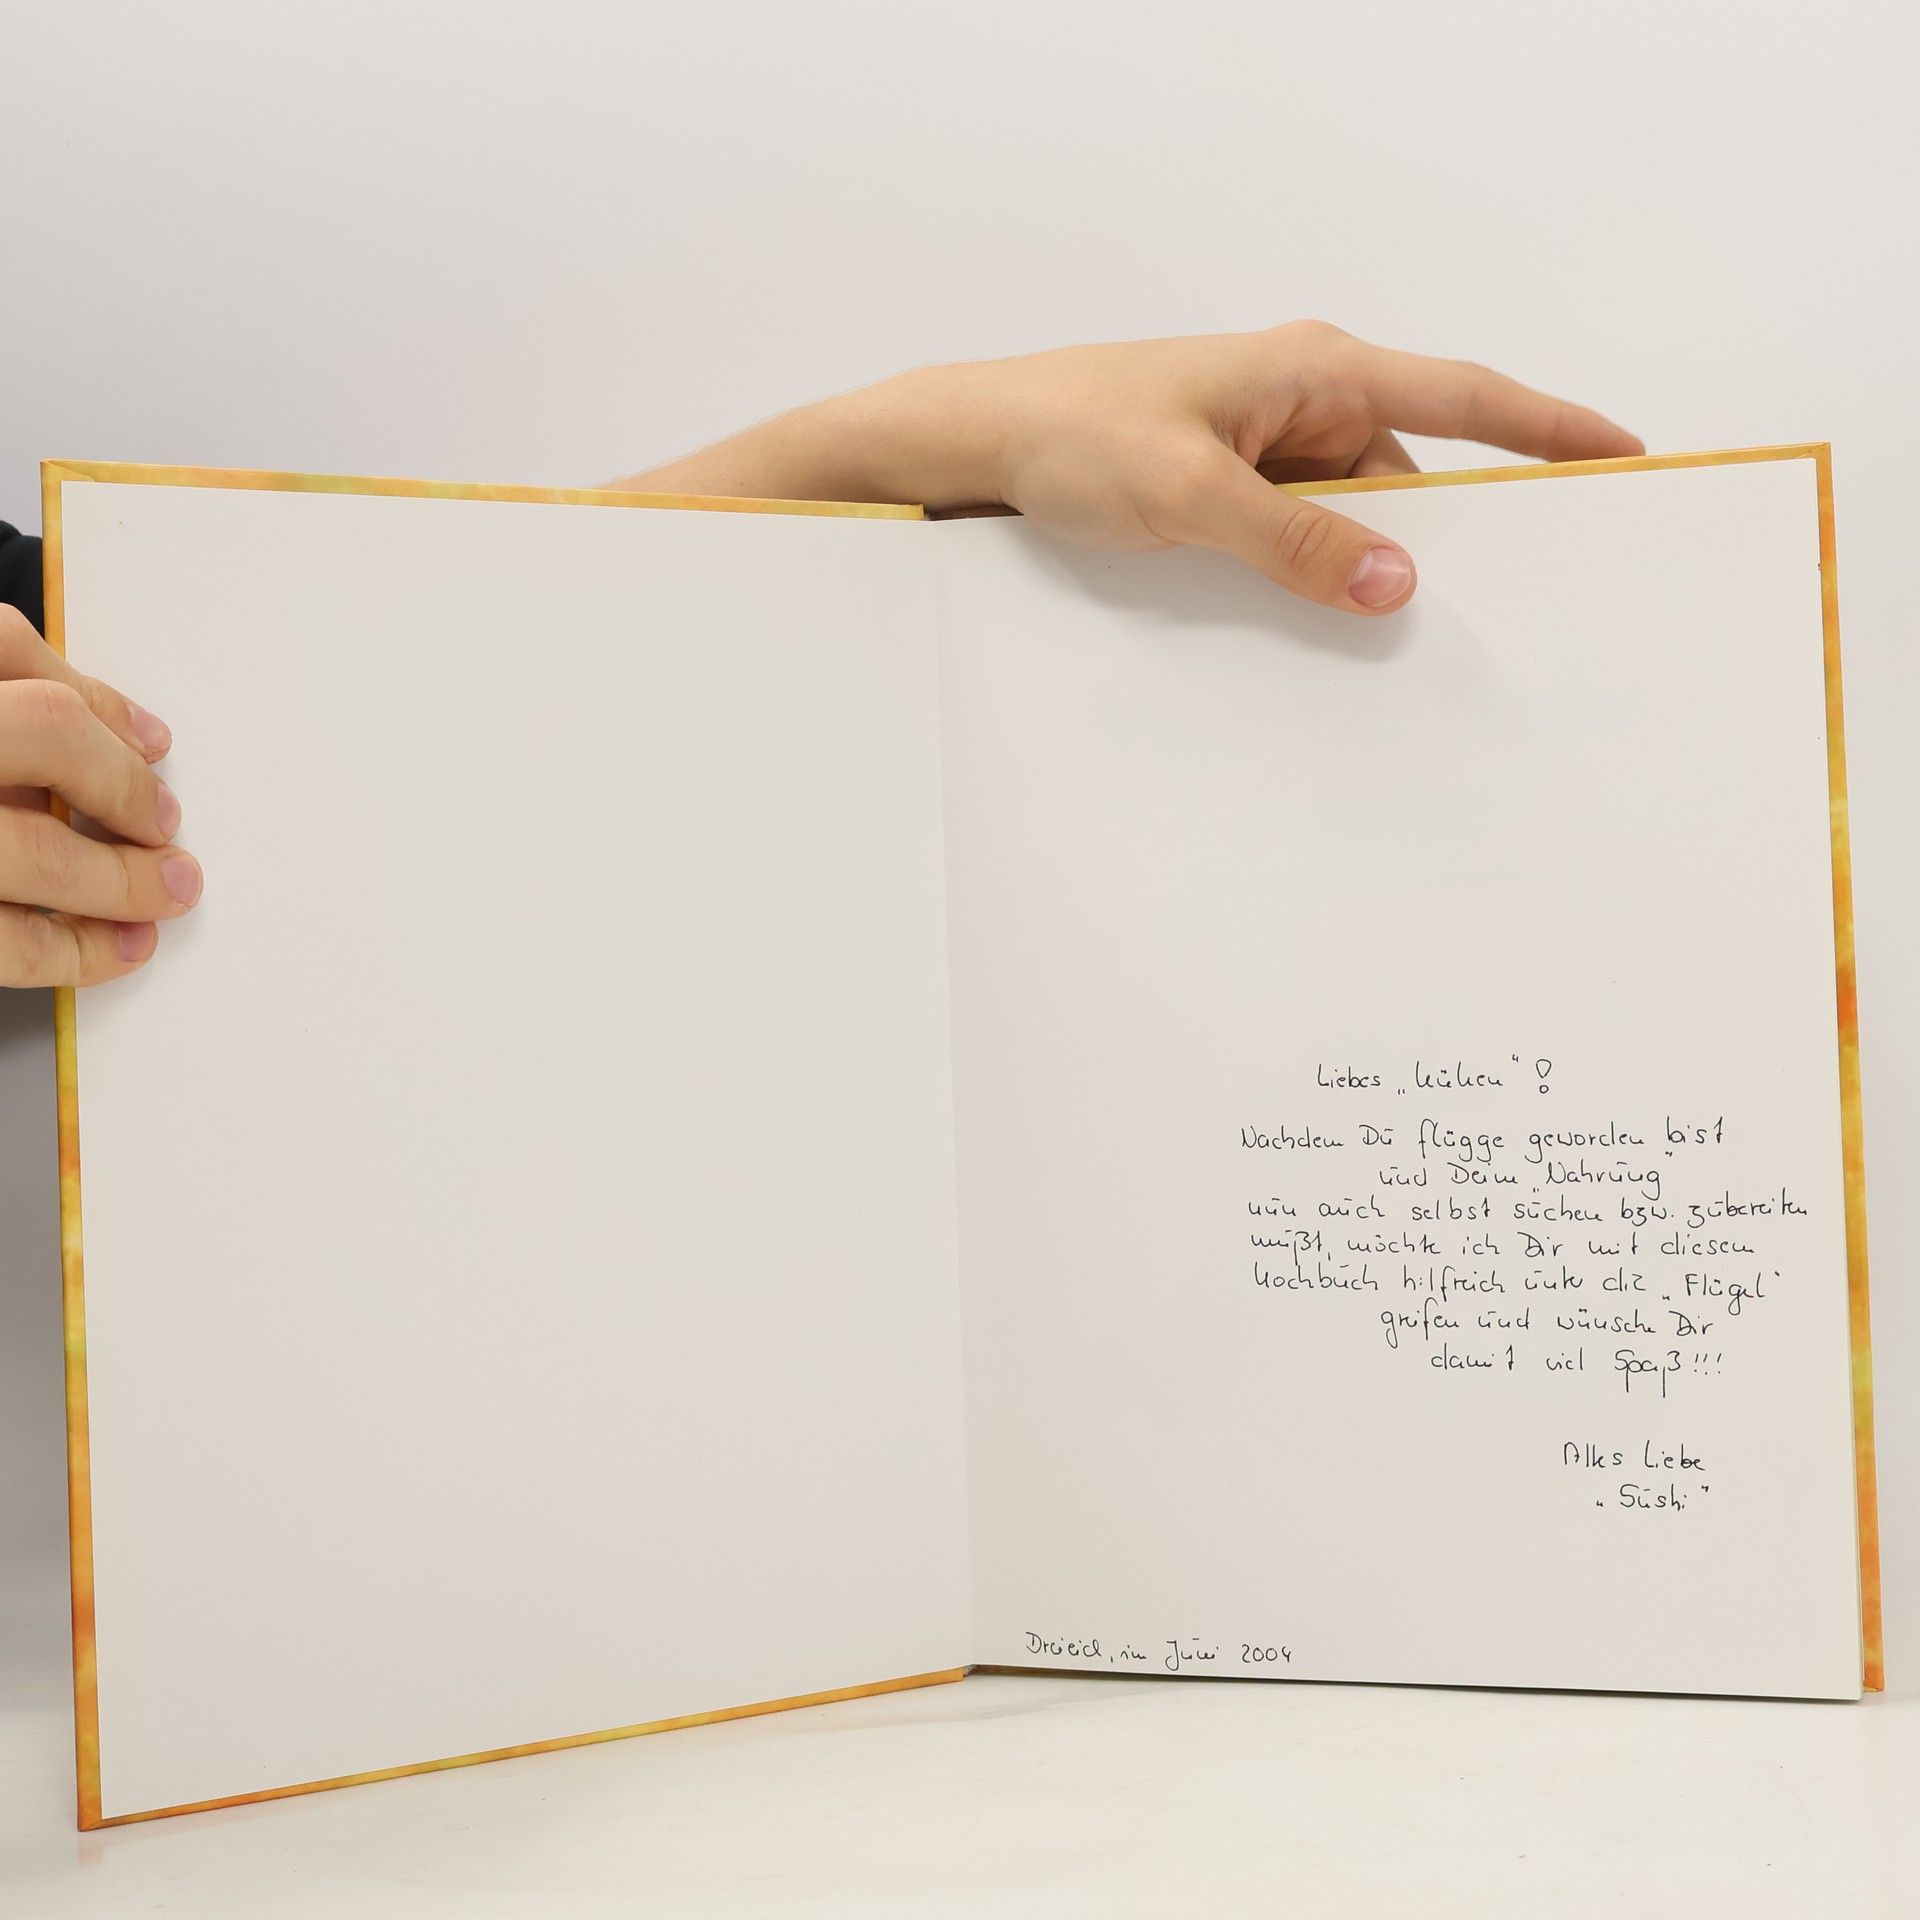 Liebes „Küken“!
Nachdem Du flügge geworden bist
und Deine „Nahrung“
nun auch selbst suchen bzw. zubereiten
mußt, möchte ich Dir mit diesem
Kochbuch hilfreich unter die „Flügel“
greifen und wünsche Dir
damit viel Spaß!!!
Alles Liebe
„Sushi“
Dreieich, im Juni 2004